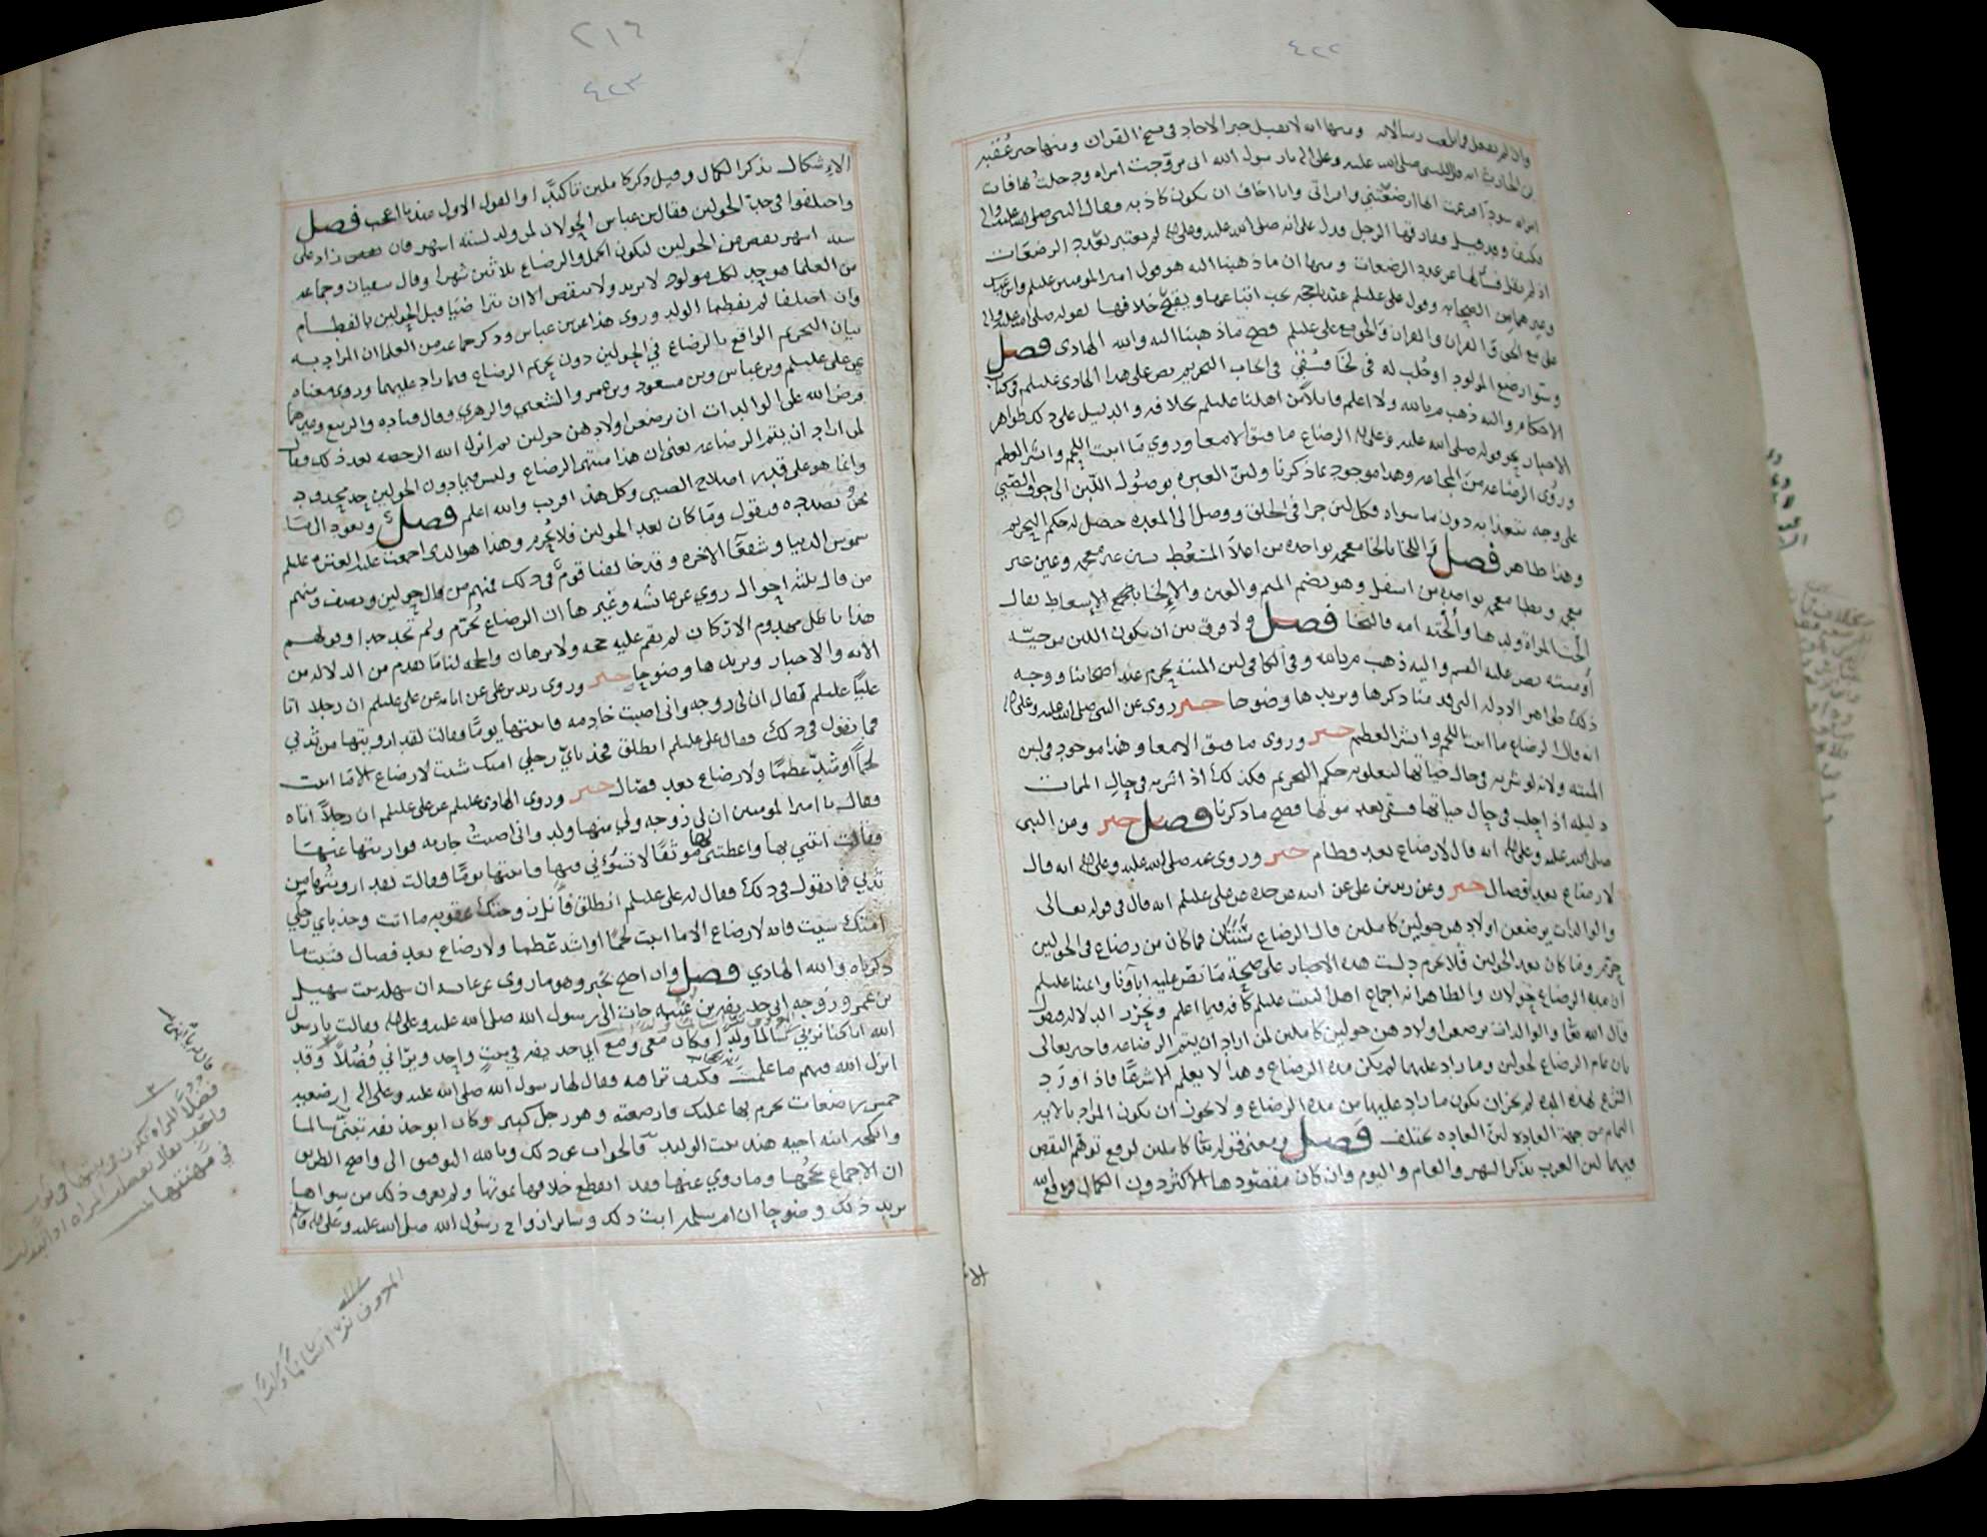 ٤٢٢
وان لم تفعل فما بلغت رسالاته ومنها انه لا يقبل خبر الاحاد في نسخ القران ومنها خبر عقبه
بن الحارث انه قال للنبي صلى الله عليه وعلى اله يا رسول الله اني تزوجت امراه ودخلت بها فاتت
امراه سودا فزعمت انها ارضعتني وامراتي وانا اخاف ان تكون كاذبه فقال النبي صلى الله عليه واله
فكيف وقد قيل ففارقها الرجل ودل على انه صلى الله عليه وعلى اله لم يعتبر تعدد الرضعات
اذ لم يقل فسألها عن عدد الرضعات ومنها ان ما ذهبنا اليه هو قول امير المومنين عليلم وابن عباس
وغيرهما من الصحابه وقول علي عليلم عندنا حجه يجب اتباعها ويقبح خلافها لقوله صلى الله عليه واله
علي مع الحق والقران والقران والحق مع علي عليلم فصح ما ذهبنا اليه والله الهادي فصل
وسوا رضع المولود او حلب له في لخا فسقي في ايجاب التحريم نص على هذا الهادي عليلم في كتاب
الاحكام واليه ذهب م بالله ولا اعلم قايلا من اهلنا عليلم بخلافه والدليل على ذلك ظواهر
الاخبار نحو قوله صلى الله عليه وعلى اله الرضاع ما فتق الامعا وروي ما انبت اللحم وانشر العظم
وروي الرضاعه من المجاعه وهذا موجود بما ذكرنا ولان العبره بوصول اللبن الى جوف الصبي
على وجه يتغذا به دون ما سواه فكل لبن جرا في الحلق ووصل الى المعده حصل له حكم التحريم
وهذا ظاهر فصل اللخا بالخا معجمه بواحده من اعلا المسعط بسين غير معجمه وعين غير
معجمه وبطا معجمه بواحده من اسفل وهو بضم الميم والعين والالخا بالخا الاسعاط يقال
الخت المراة ولدها والخته امه فالتخا فصل ولا فرق بين ان يكون اللبن من حيه
او ميته نص عليه القسم واليه ذهب م بالله وفي الكافي لبن الميته يحرم عند اصحابنا ووجه
ذلك ظواهر الادله التي قدمنا ذكرها ويزيدها وضوحا خبر روي عن النبي صلى الله عليه وعلى اله
انه قال الرضاع ما انبت اللحم وانشر العظم خبر وروي ما فتق الامعا وهذا موجود في لبن
الميته ولانه لو شربه في حال حياتها لتعلق به حكم التحريم فكذلك اذا شربه في حال الممات
دليله اذا حلب في حال حياتها فسقي بعد موتها فصح ما ذكرنا فصل خبر وعن النبي
صلى الله عليه وعلى اله انه قال لا رضاع بعد فطام خبر وروي عنه صلى الله عليه وعلى اله انه قال
لا رضاع بعد فصال خبر وعن زيد بن علي عن ابيه عن جده عن علي عليلم انه قال في قوله تعالى
والوالدات يرضعن اولادهن حولين كاملين قال الرضاع سنتان فما كان من رضاع في الحولين
حرم وما كان بعد الحولين فلا يحرم دلت هذه الاخبار على صحة ما نص عليه اباؤنا وايمتنا عليلم
ان مده الرضاع حولان والظاهر انه اجماع اهل البيت عليلم كافه فيما اعلم ونحرر الدلاله فنقول
قال الله تعا والوالدات يرضعن اولادهن حولين كاملين لمن اراد ان يتم الرضاعه فاخبر تعالى
بان تمام الرضاع لحولين وما زاد عليهما لم يكن مده الرضاع وهذا لا يعلم الا شرعا فاذا ورد
الشرع بهذه المده لم يجز ان يكون ما زاد عليها من مده الرضاع ولا يجوز ان يكون المراد بالايه
التمام من جهة العاده لان العاده تختلف فصل ومعنى قوله تعا كاملين لرفع توهم النقص
فيهما لان العرب تذكر الشهر والعام واليوم وان كان مقصودها الاكثر دون الكمال فرفع الله
الا
٢١٦
٤٢٣
الاشكال بذكر الكمال وقيل ذكر كاملين تاكيدا والقول الاول عندنا اعجب فصل
واختلفوا في حد الحولين فقال بن عباس الحولان لمن ولد لسته اشهر فان نقص زاد على
سته اشهر نقص من الحولين ليكون الحمل والرضاع ثلاثين شهرا وقال سفيان وجماعه
من العلما هو حد لكل مولود لا يزيد ولا ينقص الا ان تراضيا قبل الحولين بالفطام
وان اختلفا لم يفطما الولد وروي هذا عن بن عباس وذكر جماعه من العلما ان المراد به
بيان التحريم الواقع بالرضاع في الحولين دون تحريم الرضاع فيما زاد عليهما وروي معناه
عن علي عليلم وبن عباس وبن مسعود وبن عمر والشعبي والزهري وقال قتاده والربيع وغيرهما
فرض الله على الوالدات ان يرضعن اولادهن حولين ثم انزل الله الرخصه بعد ذلك فقال
لمن اراد ان يتم الرضاعه يعني ان هذا منتهى الرضاع وليس فيما دون الحولين حد محدود
وانما هو على قدر اصلاح الصبي وكل هذا قريب والله اعلم فصل ونعود الى ما
نحن بصدده فنقول وما كان بعد الحولين فلا يحرم وهذا هو الذي اجمعت عليه العتره عليلم
شموس الدنيا وشفعا الاخره وقد خالفنا قوم في ذلك فمنهم من قال حولين ونصف ومنهم
من قال ثلثه احوال روي عن عايشه وغيرها ان الرضاع يحرم ولم تحد حدا وقولهم
هذا باطل مهدوم الاركان لم يقم عليه حجه ولا برهان والحجه لنا ما تقدم من الدلاله من
الايه والاخبار ويزيدها وضوحا خبر وروى زيد بن علي عن ابايه عن علي عليلم ان رجلا اتا
عليا عليلم فقال ان لي زوجه واني اصبت خادمه فاتيتها يوما فقالت لقد ارويتها من ثديي
فما تقول في ذلك فقال علي عليلم انطلق فخذ باي رجلي امتك شيت لا رضاع الا ما انبت
لحما او شد عظما ولا رضاع بعد فصال خبر وروى الهادي عليلم عن علي عليلم ان رجلا اتاه
فقال يا امير المومنين ان لي زوجه ولي منها ولد واني اصبت جاريه فواريتها عنها
فقالت ائتني بها واعطتني موثقا لا تسوني فيها فاتيتها يوما فقالت لقد ارويتها من
ثديي فما تقول في ذلك فقال له علي عليلم انطلق فانل زوجتك عقوبه ما اتت وخذ باي رجلي
امتك شيت فانه لا رضاع الا ما انبت لحما او اشد عظما ولا رضاع بعد فصال فثبت ما
ذكرناه والله الهادي فصل وان احتج بخبر وهو ما روي عن عايشه ان سهله بنت سهيل
بن عمرو زوجه ابي حذيفه بن عتبه جات الى رسول الله صلى الله عليه وعلى اله فقالت يا رسول
الله انا كنا نرى سالما ولدا وكان معي ومع ابي حذيفه في بيت واحد ويراني فضلا وقد
انزل الله فيهم ما علمت فكيف ترا فيه فقال لها رسول الله صلى الله عليه وعلى اله ارضعيه
خمس رضعات يحرم بها عليك فارضعته وهو رجل كبير وكان ابو حذيفه تبنى سالما
وانكحه ابنه اخيه هند بنت الوليد فالجواب عن ذلك وبالله التوفيق الى واضح الطريق
ان الاجماع يحجها وما روي عنها فقد انقطع خلافها بموتها ولم يعرف ذلك من سواها
يزيد ذلك وضوحا ان ام سلمه ابت ذلك وسائر ازواج رسول الله صلى الله عليه وعلى اله
فضلا المراه تكون في بيتها في ثوب
واحد يقال تفضلت المراه اذا تبذلت
في مهنتها